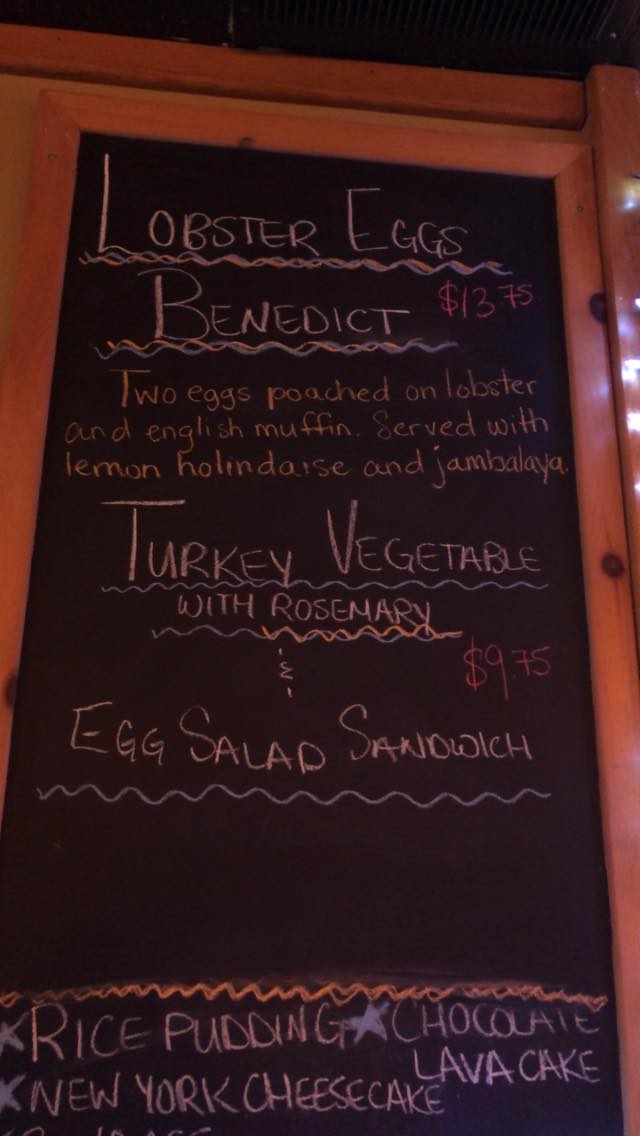 LOBSTER EGGS
BENEDICT $13.75
Two eggs poached on lobster
and english muffin. Served with
lemon holindaise and jambalaya.
TURKEY VEGETABLE
WITH ROSEMARY
& $9.75
EGG SALAD SANDWICH
RICE PUDDING CHOCOLATE
LAVA CAKE
NEW YORK CHEESECAKE